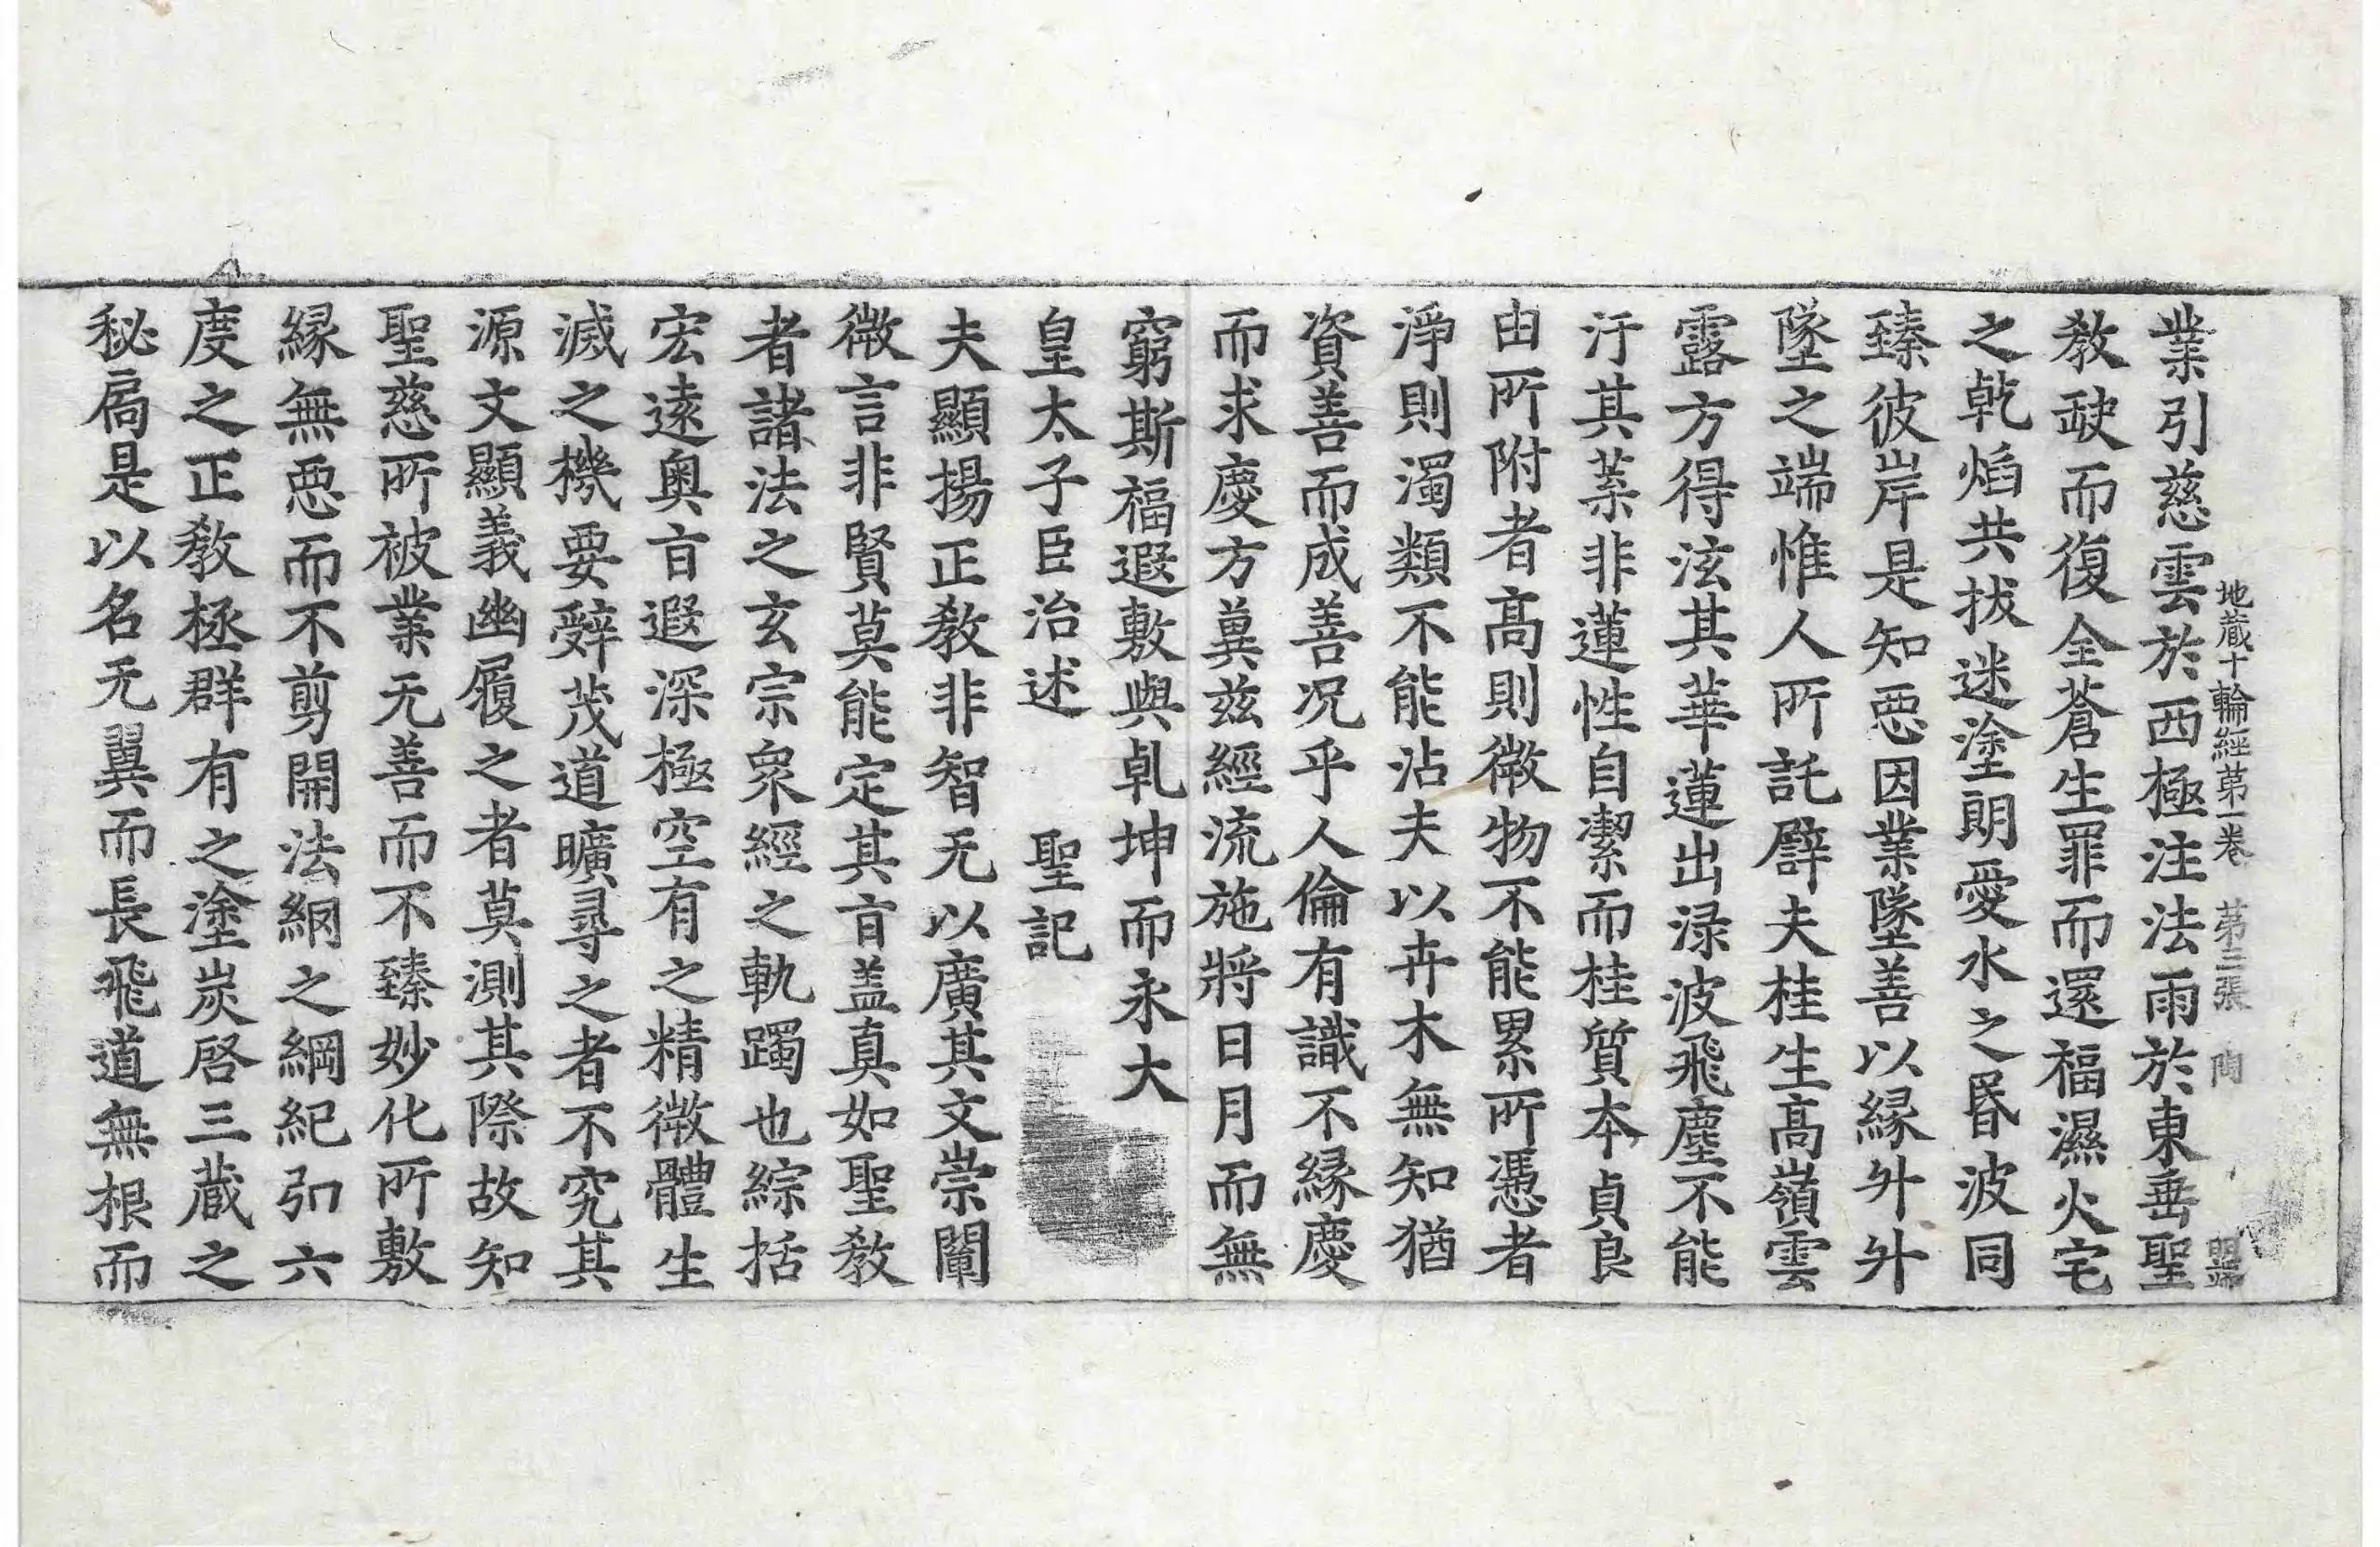 地蔵十輪經苐一卷 苐三張 陶
業引慈雲於西極注法雨於東垂聖
教䟽而復全蒼生罪而還福濕火宅
之乾焰共拔迷塗朗愛水之昬波同
臻彼岸是知惡因業墜善以縁升升
墜之端惟人所託譬夫桂生髙嶺雲
露方得泫其華蓮出渌波飛塵不能
汙其葉非蓮性自潔而桂質本貞良
由所附者髙則微物不能累所憑者
淨則濁類不能沾夫以卉木無知猶
資善而成善况乎人倫有識不縁慶
而求慶方兾茲經流施將日月而無
窮斯福遐敷與乹坤而永大
皇太子臣治述 聖記
夫顯揚正教非智无以廣其文崇闡
微言非賢莫能定其㫖盖真如聖教
者諸法之玄宗衆經之軌躅也綜括
宏遠奥㫖遐深極空有之精微體生
滅之機要辤茂道曠尋之者不究其
源文顯義幽履之者莫測其際故知
聖慈所被業无善而不臻妙化所敷
縁無惡而不剪開法網之綱紀弘六
度之正教拯群有之塗炭啓三蔵之
秘扃是以名无翼而長飛道無根而